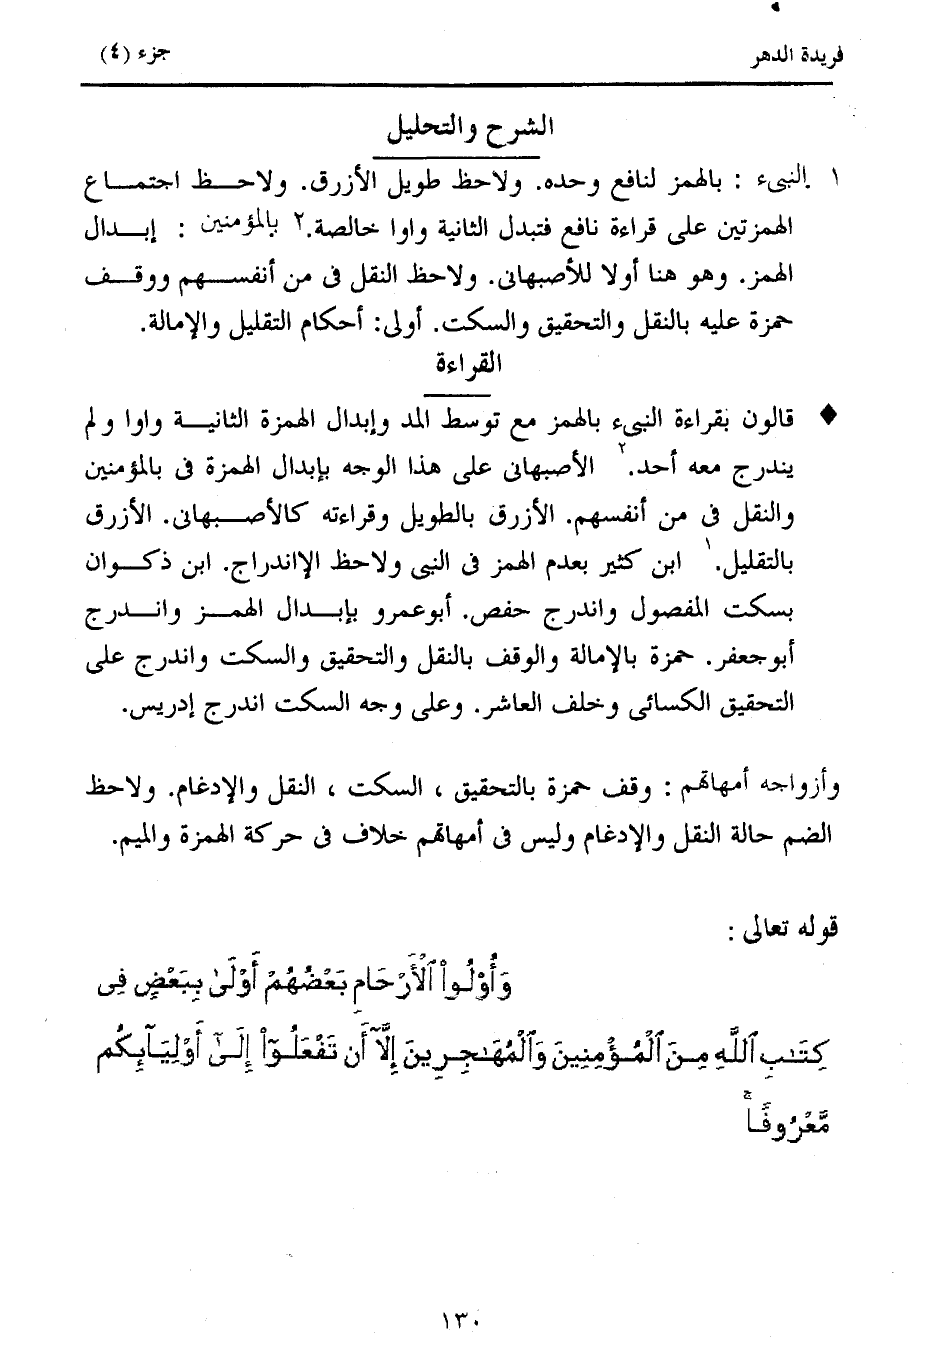 فريدة الدهر
جزء (٤)
الشرح والتحليل
١ النبىء : بالهمز لنافع وحده. ولاحظ طويل الأزرق. ولاحــظ اجتمــاع
الهمزتين على قراءة نافع فتبدل الثانية واوا خالصة.٢ بالمؤمنين : إبــدال
الهمز. وهو هنا أولا للأصبهانى. ولاحظ النقل فى من أنفســهم ووقــف
حمزة عليه بالنقل والتحقيق والسكت. أولى: أحكام التقليل والإمالة.
القراءة
♦ قالون بقراءة النبىء بالهمز مع توسط المد وإبدال الهمزة الثانيــة واوا ولم
يندرج معه أحد.٢ الأصبهانى على هذا الوجه بإبدال الهمزة فى بالمؤمنين
والنقل فى من أنفسهم. الأزرق بالطويل وقراءته كالأصــبهانى. الأزرق
بالتقليل.١ ابن كثير بعدم الهمز فى النبى ولاحظ الإاندراج. ابن ذكــوان
بسكت المفصول واندرج حفص. أبوعمرو بإبــدال الهمــز وانــدرج
أبوجعفر. حمزة بالإمالة والوقف بالنقل والتحقيق والسكت واندرج على
التحقيق الكسائى وخلف العاشر. وعلى وجه السكت اندرج إدريس.
وأزواجه أمهاتهم : وقف حمزة بالتحقيق ، السكت ، النقل والإدغام. ولاحظ
الضم حالة النقل والإدغام وليس فى أمهاتهم خلاف فى حركة الهمزة والميم.
قوله تعالى :
وَأُوْلُواْ ٱلْأَرْحَامِ بَعْضُهُمْ أَوْلَىٰ بِبَعْضٍ فِى
كِتَٰبِ ٱللَّهِ مِنَ ٱلْمُؤْمِنِينَ وَٱلْمُهَٰجِرِينَ إِلَّآ أَن تَفْعَلُوٓاْ إِلَىٰٓ أَوْلِيَآئِكُم
مَّعْرُوفًاۚ
١٣٠